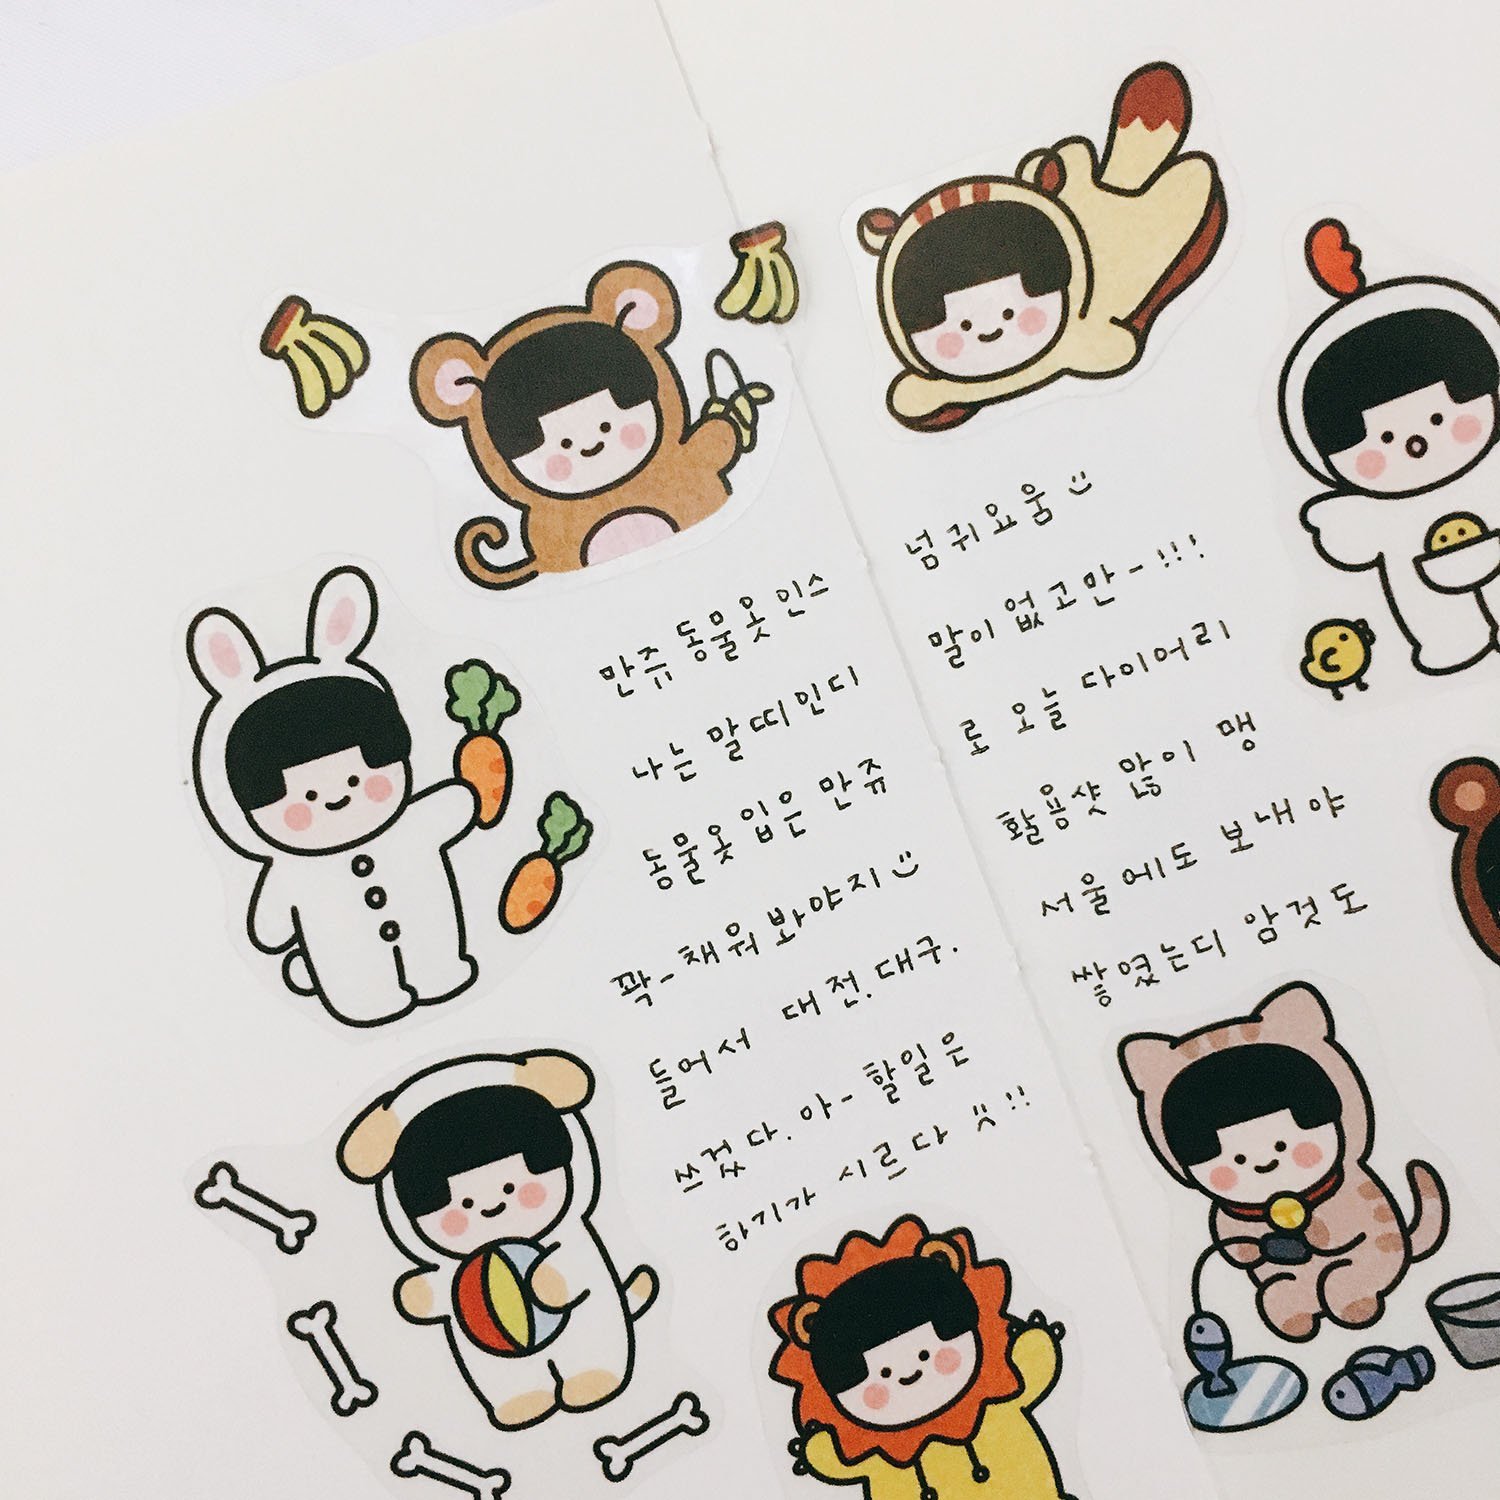 만쥬 동물옷 인스
나는 말띠인디
동물옷 입은 만쥬
꽉-채워봐야지
들어서 대전.대구.
쓰겄다. 아- 할일은
하기가 시르다
넘귀요움
말이 없고만-!!!
로 오늘 다이어리
활용샷 많이 맹
서울에도 보내야
쌓였는디 암것도